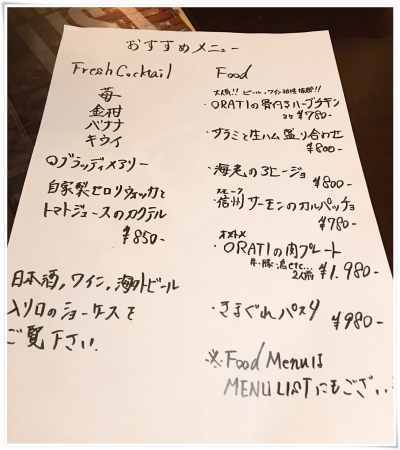 おすすめメニュー
Fresh Cocktail
苺
金柑
バナナ
キウイ
ブラッディメアリー
自家製セロリウォッカと
トマトジュースのカクテル
¥850-
日本酒,ワイン,海外ビール
入り口のショーケースを
ご覧下さい.
Food
大人気!! ビール・ワイン相性抜群!!
・ORATIの骨付きハーブチキン
¥780-
・サラミと生ハム盛り合わせ
¥800-
・海老のアヒージョ
¥800-
スモーク
・信州サーモンのカルパッチョ
¥780-
オススメ
・ORATIの肉プレート
牛・豚・鶏etc...
2人前 ¥1.980-
・きまぐれパスタ
¥980-
※Food Menuは
MENU LISTにもござい